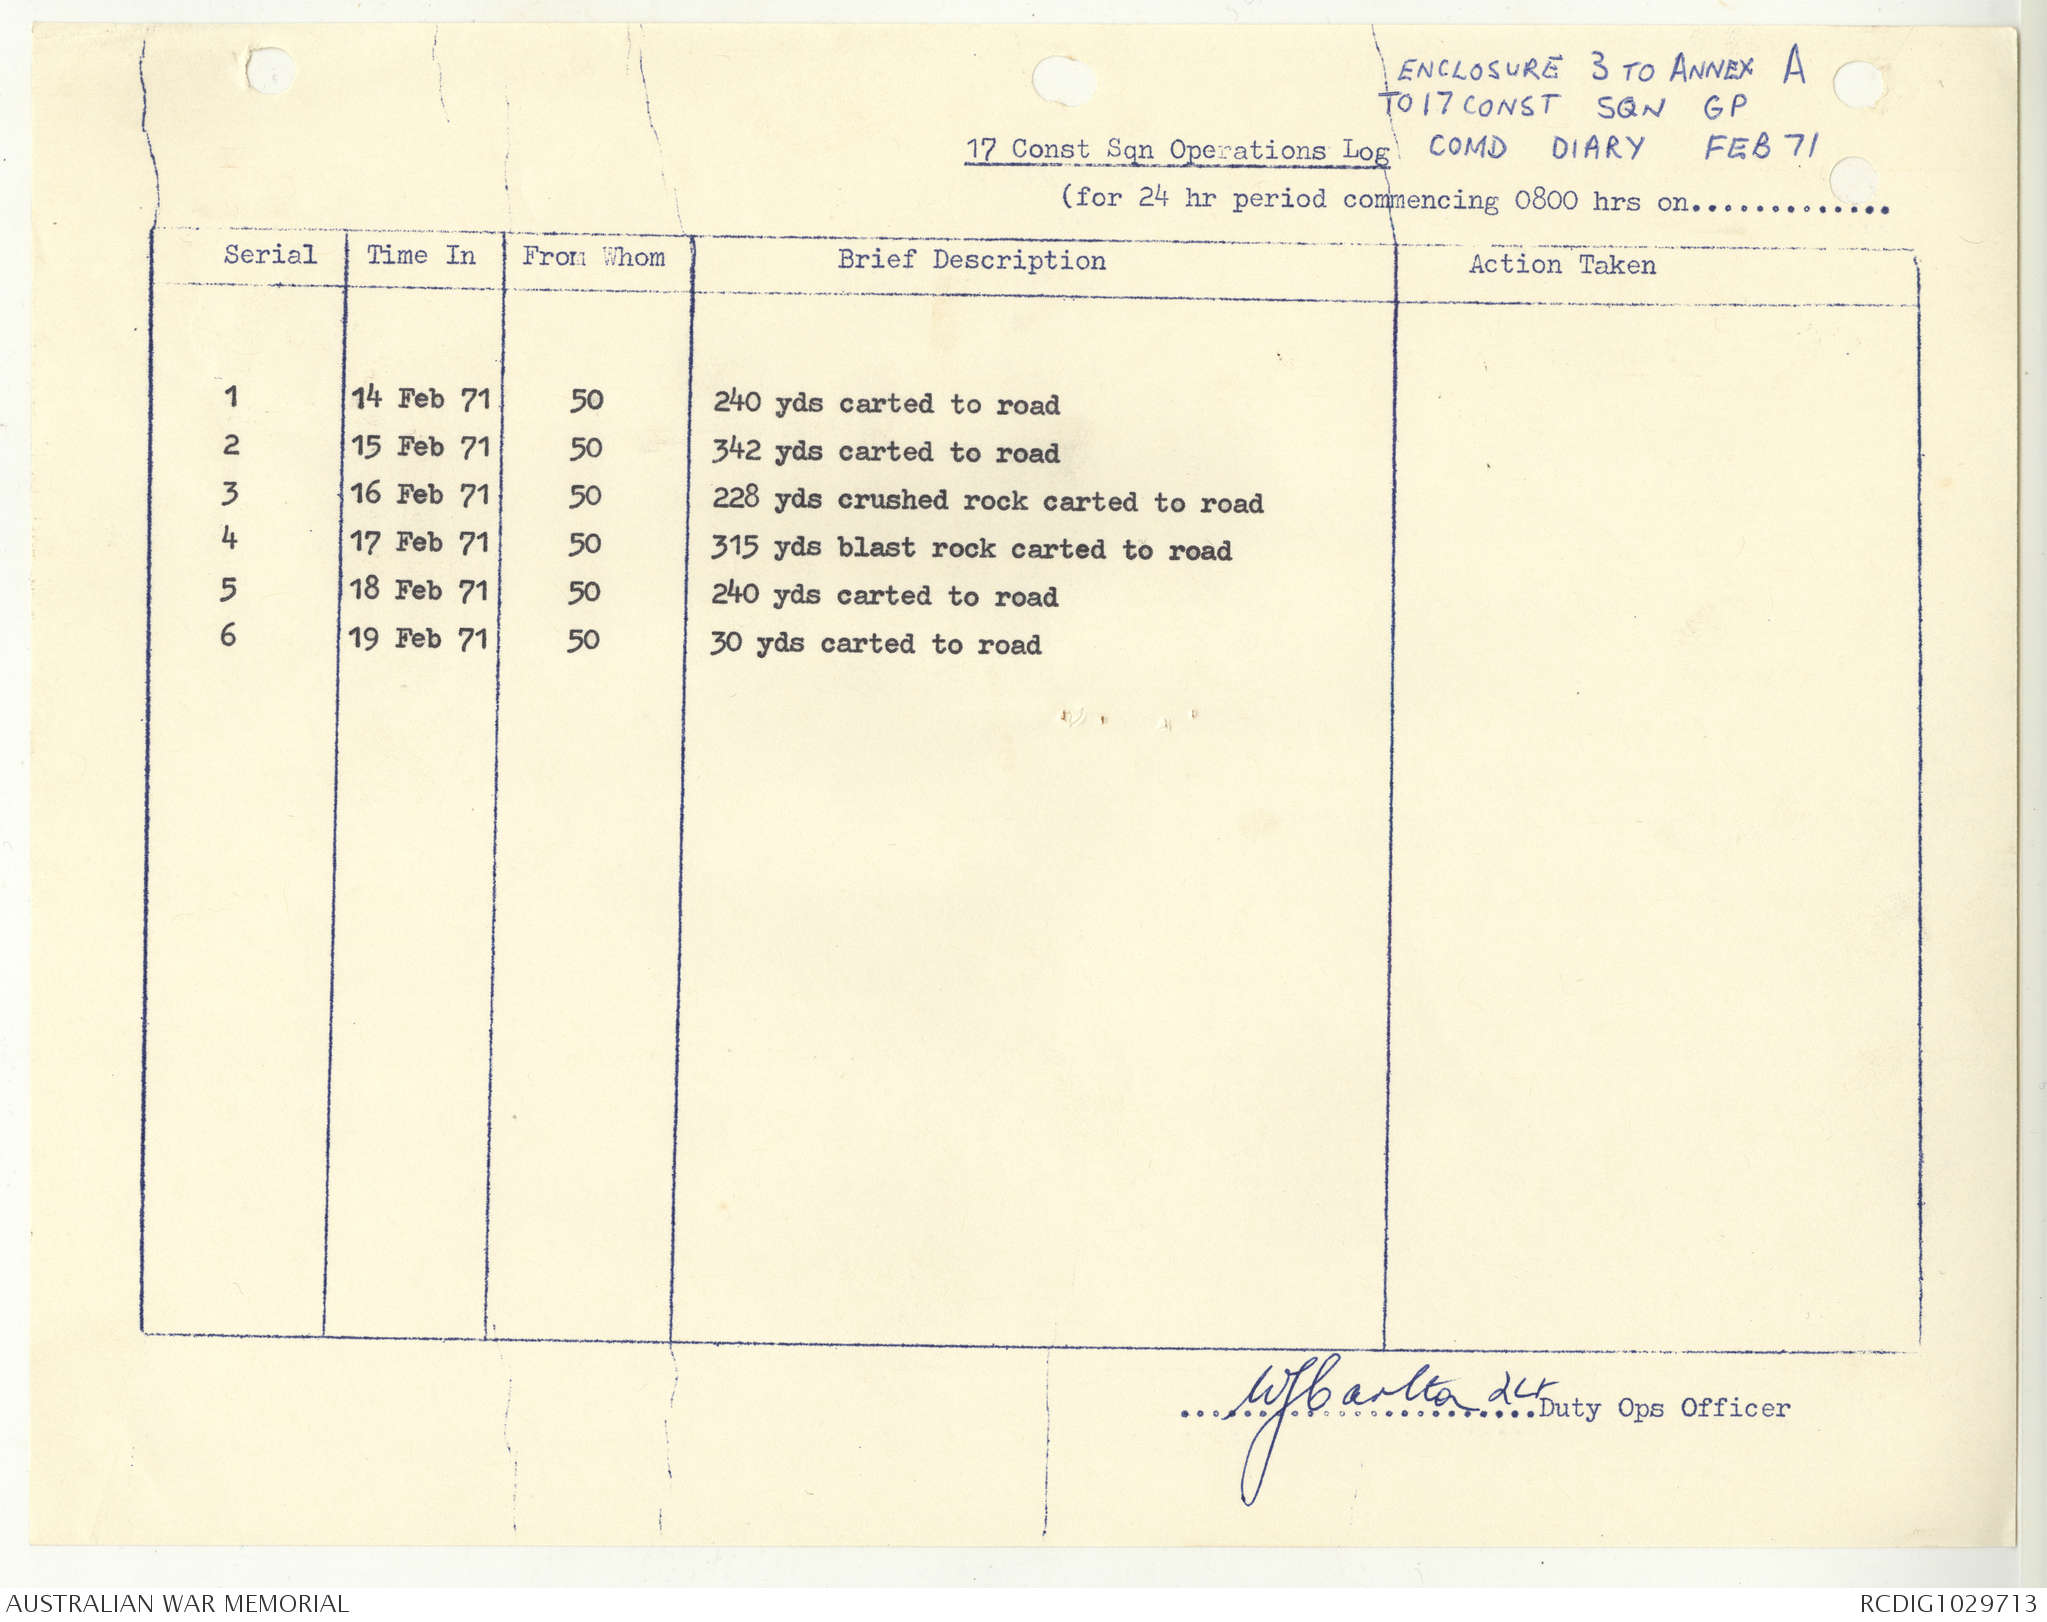 ENCLOSURE 3 TO ANNEX A
TO 17 CONST SQN GP
COMD DIARY FEB 71
17 Const Sqn Operations Log
(for 24 hr period commencing 0800 hrs on.............
Serial Time In From Whom Brief Description Action Taken
1 14 Feb 71 50 240 yds carted to road
2 15 Feb 71 50 342 yds carted to road
3 16 Feb 71 50 228 yds crushed rock carted to road
4 17 Feb 71 50 315 yds blast rock carted to road
5 18 Feb 71 50 240 yds carted to road
6 19 Feb 71 50 30 yds carted to road
Duty Ops Officer
AUSTRALIAN WAR MEMORIAL
RCDIG1029713